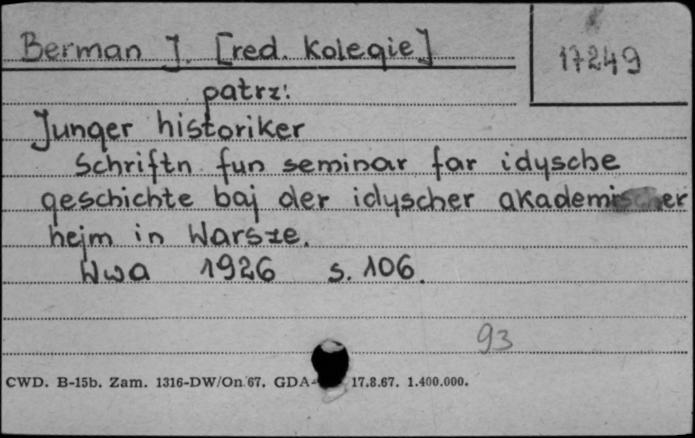 Berman J. [red. Kolegie]
17249
patrz:
Junger historiker
Schriftn fun seminar far idysche
geschichte baj der idyscher akademischer
hejm in Warsze.
Wwa 1926 s. 106.
93
CWD. B-15b. Zam. 1316-DW/On 67. GDA 17.8.67. 1.400.000.